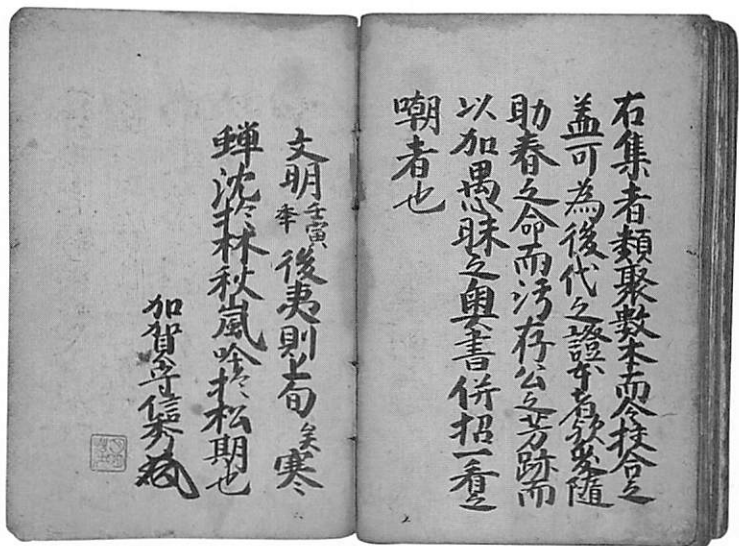 右集者類聚數本而令挍合之
盖可為後代之證本者歟爰随
助春之命而汚存公之芳跡而
以加愚昧之奥書併招一看之
嘲者也
文明壬寅年後夷則上旬矣寒
蝉沈々於林秋嵐吟々於松期也
加賀守信秀